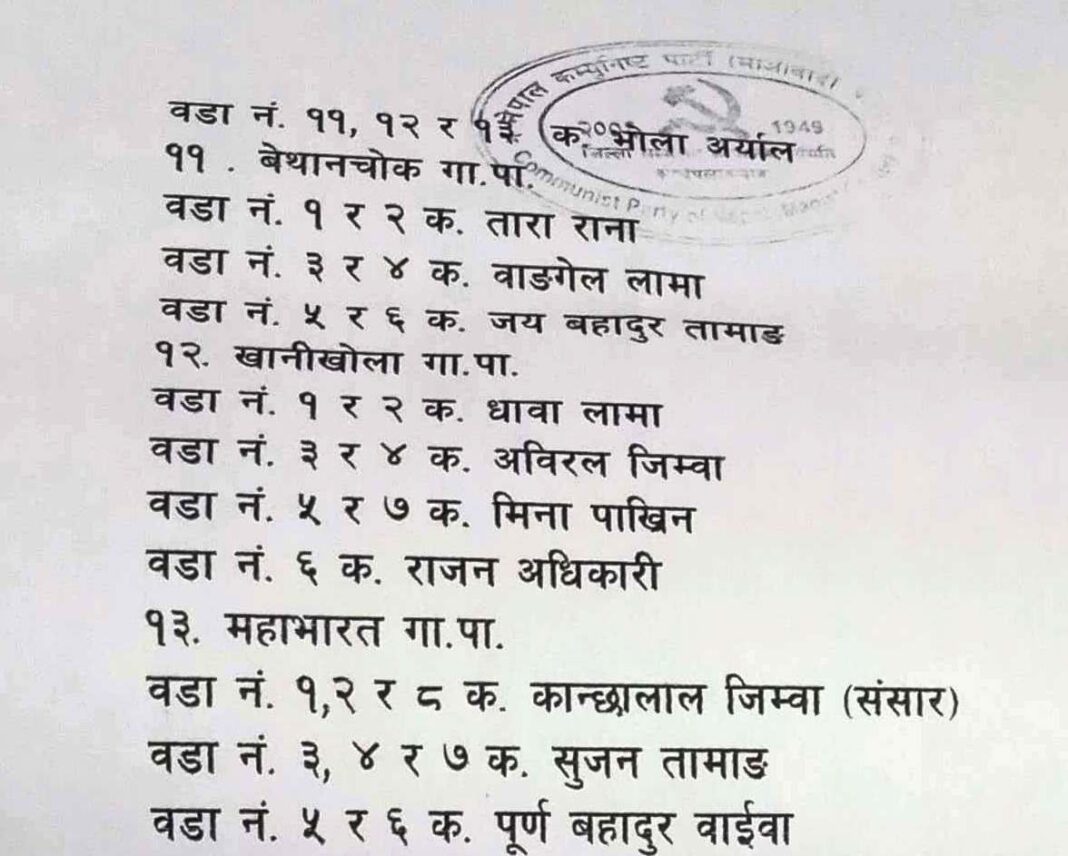 नेपाल कम्युनिष्ट पार्टी (माओवादी
1949
जिल्ला
Communist Party of Nepal
वडा नं. ११, १२ र १३ क. भोला अर्याल
११ . बेथानचोक गा.पा.
वडा नं. १ र २ क. तारा राना
वडा नं. ३ र ४ क. वाङगेल लामा
वडा नं. ५ र ६ क. जय बहादुर तामाङ
१२. खानीखोला गा.पा.
वडा नं. १ र २ क. धावा लामा
वडा नं. ३ र ४ क. अविरल जिम्वा
वडा नं. ५ र ७ क. मिना पाख्रिन
वडा नं. ६ क. राजन अधिकारी
१३. महाभारत गा.पा.
वडा नं. १,२ र ८ क. कान्छालाल जिम्वा (संसार)
वडा नं. ३, ४ र ७ क. सुजन तामाङ
वडा नं. ५ र ६ क. पूर्ण बहादुर वाईवा